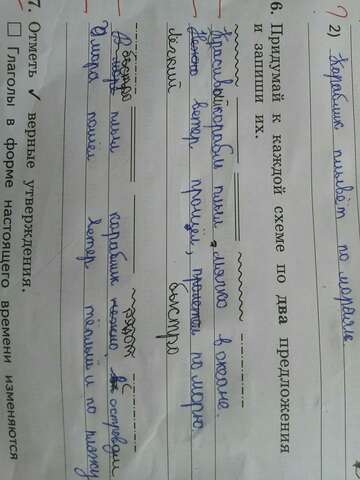 2) Кораблик плывёт по морю
6. Придумай к каждой схеме по два предложения
и запиши их.
Красивый корабль плыл мягко в океане.
Лёгкий ветер прошёл, по морю
быстро
быстро плыл кораблик рядом с островом
Вчера пошёл ветер тёплый и по пляжу
7. Отметь ✓ верные утверждения.
☐ Глаголы в форме настоящего времени изменяются